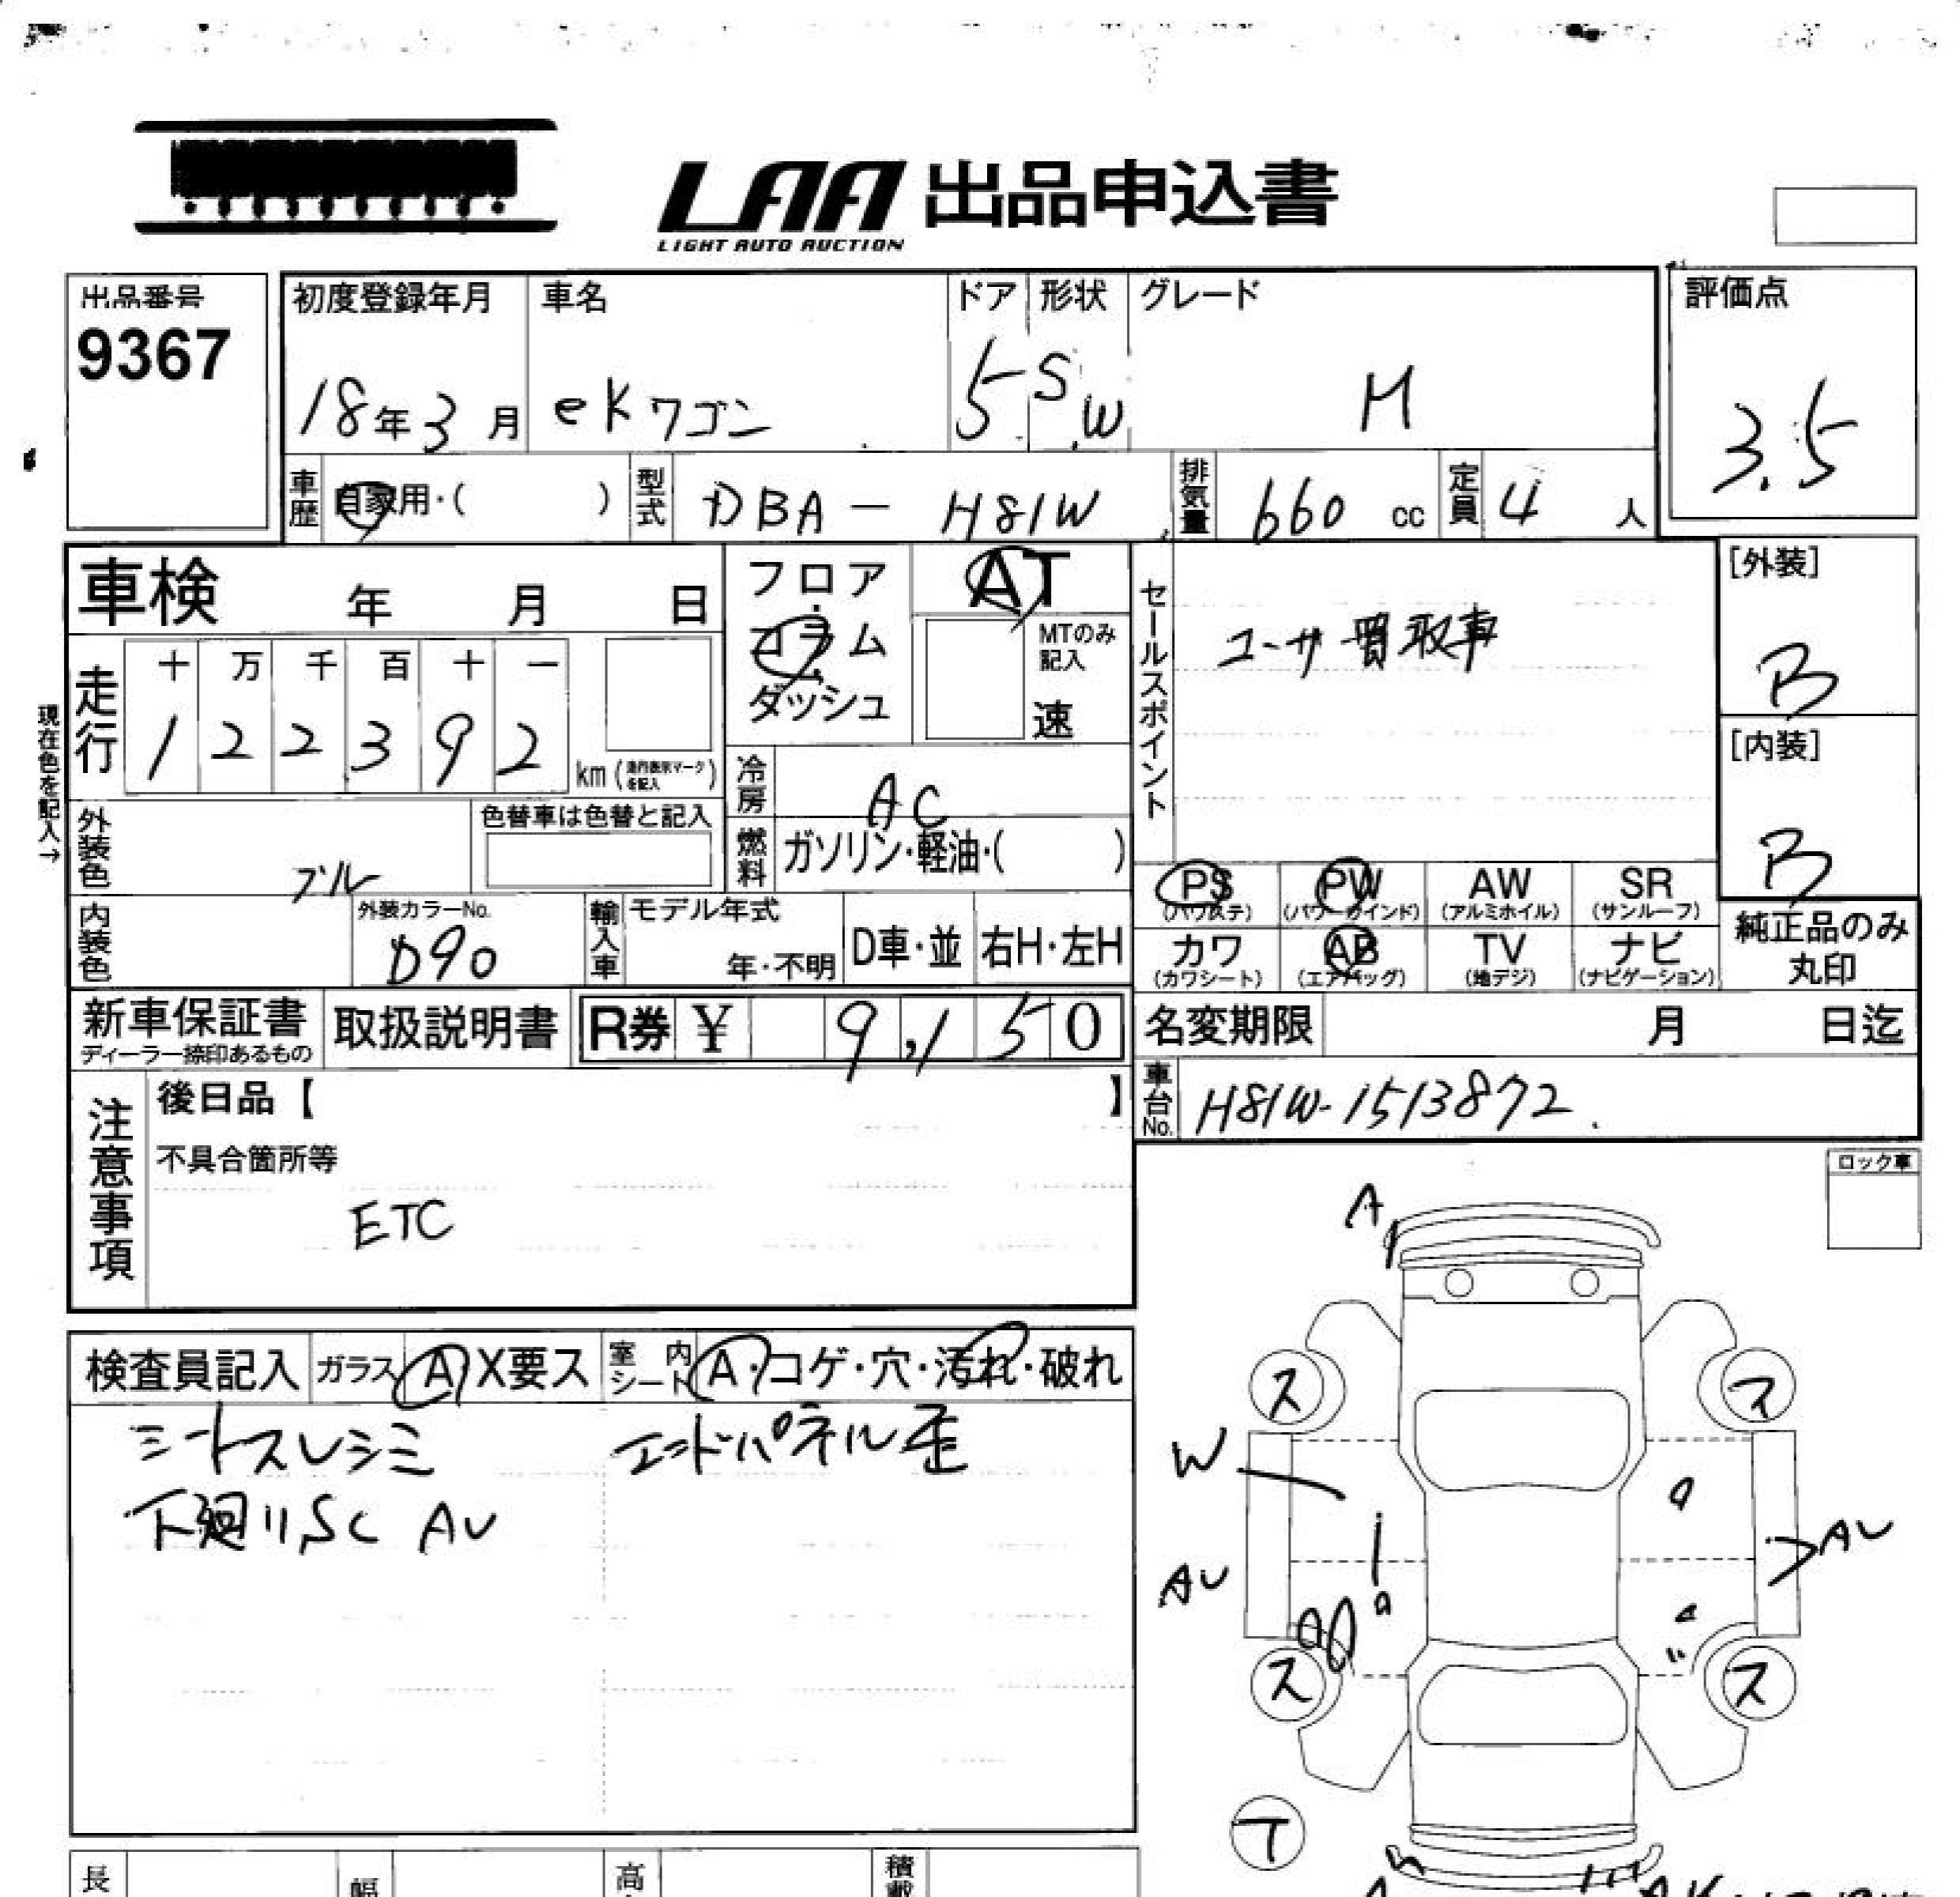 LAA 出品申込書
LIGHT AUTO AUCTION
出品番号
9367
初度登録年月 車名 ドア 形状 グレード
18年3月 eKワゴン 5 SW M
評価点
3.5
車歴 自家用・( ) 型式 DBA-H81W 排気量 660 cc 定員 4 人
車検 年 月 日
フロア・コラム・ダッシュ
AT
MTのみ記入
速
セールスポイント
ユーザ買取車
[外装]
B
[内装]
B
現在色を記入→
走行 十 万 千 百 十 一
1 2 2 3 9 2 km (走行表示マークを記入)
冷房 AC
燃料 ガソリン・軽油・( )
外装色 ブル
色替車は色替と記入
内装色
外装カラーNo.
D90
輸入車 モデル年式
年・不明 D車・並 右H・左H
PS (パワステ) PW (パワーウインド) AW (アルミホイル) SR (サンルーフ)
カワ (カワシート) AB (エアバッグ) TV (地デジ) ナビ (ナビゲーション)
純正品のみ丸印
新車保証書 取扱説明書 R券 ¥ 9,150
ディーラー捺印あるもの
名変期限 月 日迄
車台No. H81W-1513872
注意事項
後日品【 】
不具合箇所等
ETC
ロック車
検査員記入 ガラス A X要ス 室内シート A・コゲ・穴・汚れ・破れ
シートスレシミ エンドパネル歪
下廻りSC AU
A
ス ス
W
AU AU
ス ス
T
長 幅 高 積載